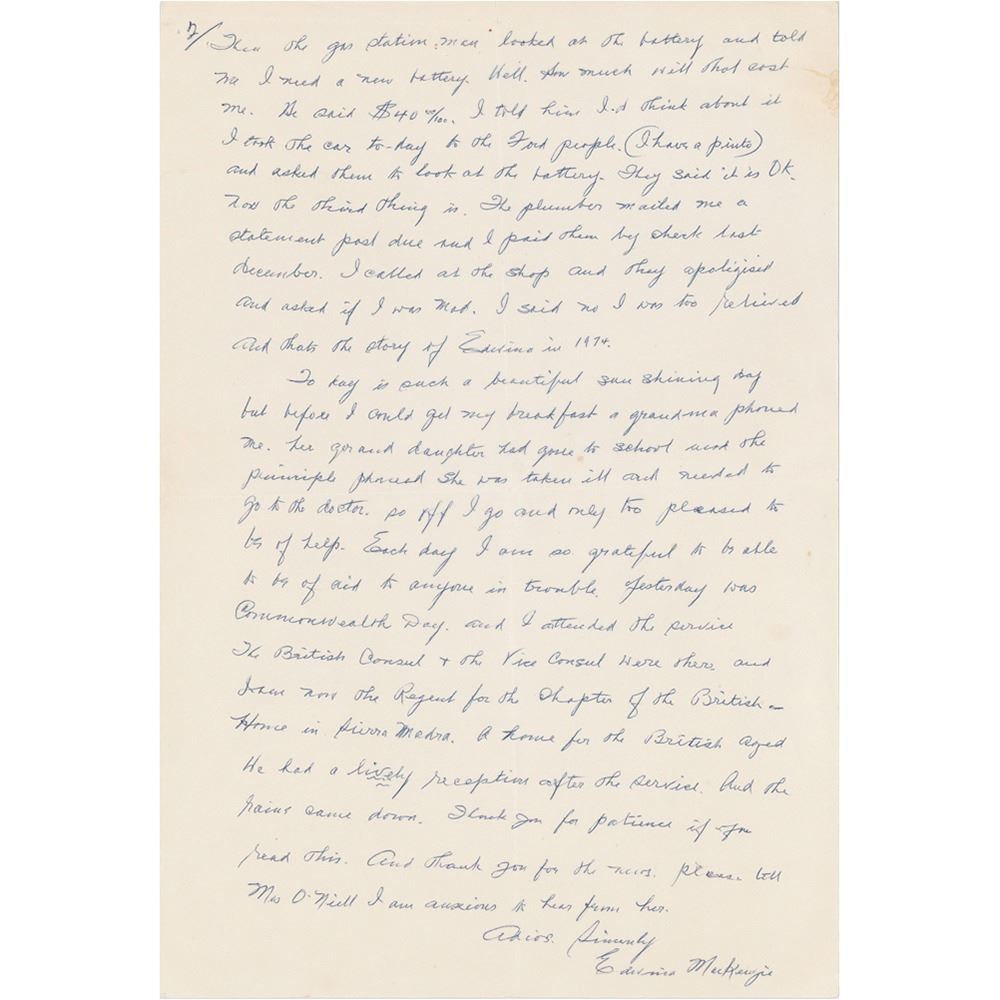 7/ Then the gas station man looked at the battery and told
me I need a new battery. Well. How much will that cost
me. He said $40 00/100. I told him I.d think about it
I took the car to-day to the Ford people. (I have a pinto)
and asked them to look at the battery. They said it is OK.
now the third thing is. The plumber mailed me a
statement past due and I paid them by check last
December. I called at the shop and they apoligised
and asked if I was mad. I said no I was too relieved
and thats the story of Edwina in 1974.
To day is such a beautiful sun shining day
but before I could get my breakfast a grandma phoned
me. her gorand daughter had gone to school and the
principle phoned she was taken ill and needed to
go to the doctor. so off I go and only too pleased to
be of help. Each day I am so grateful to be able
to be of aid to anyone in trouble. Yesterday was
Commonwealth Day. and I attended the service
The British Consul + the Vice Consul were there and
I am now the Regent for the Chapter of the British -
Home in Sierra Madra. A home for the British aged
We had a lively reception after the service. And the
rains came down. Thank you for patience if you
read this. And thank you for the news. please tell
Mrs O'Niell I am anxious to hear from her.
Adios. Sincerely
Edwina MacKenzie